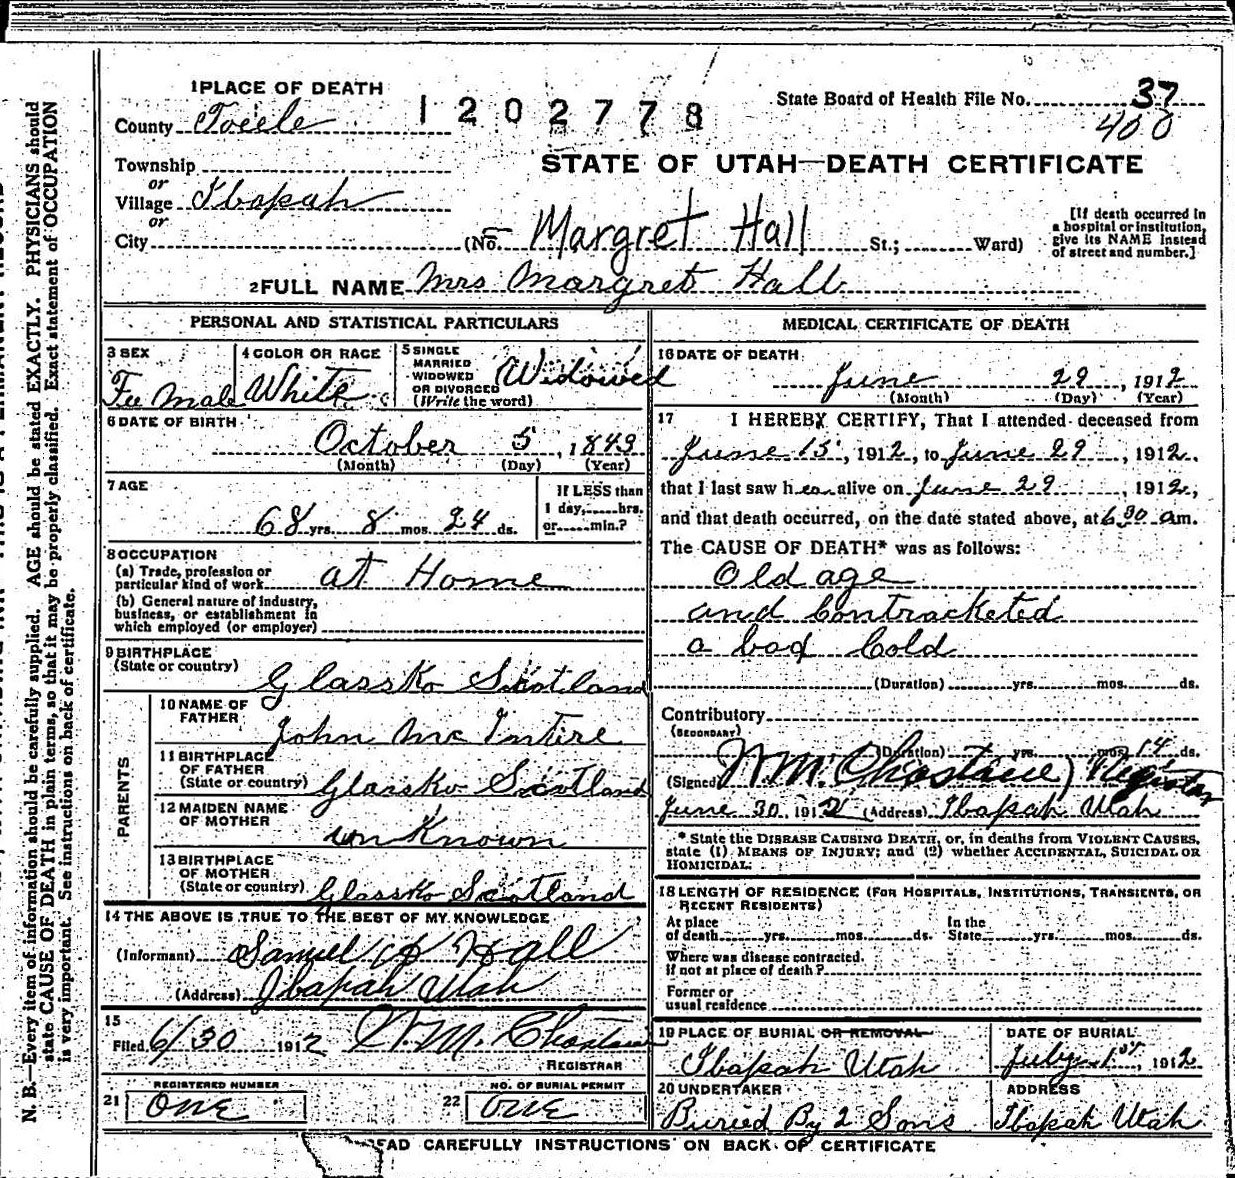 1 PLACE OF DEATH
County Toiele
1202778
State Board of Health File No. 37
400
STATE OF UTAH—DEATH CERTIFICATE
Township
or
Village Ibapah
or
City
(No. Margret Hall St.; Ward)
[If death occurred in
a hospital or institution,
give its NAME instead
of street and number.]
2 FULL NAME Mrs Margret Hall
PERSONAL AND STATISTICAL PARTICULARS
3 SEX
Fee Male
4 COLOR OR RACE
White
5 SINGLE
MARRIED
WIDOWED
OR DIVORCED
(Write the word)
Widowed
6 DATE OF BIRTH
October 5, 1843
(Month) (Day) (Year)
7 AGE
68 yrs. 8 mos. 24 ds.
If LESS than
1 day, hrs.
or min.?
8 OCCUPATION
(a) Trade, profession or
particular kind of work at Home
(b) General nature of industry,
business, or establishment in
which employed (or employer)
9 BIRTHPLACE
(State or country)
Glassko Scotland
PARENTS
10 NAME OF
FATHER
John Mc Intire
11 BIRTHPLACE
OF FATHER
(State or country) Glassko Scotland
12 MAIDEN NAME
OF MOTHER
un Known
13 BIRTHPLACE
OF MOTHER
(State or country) Glassko Scotland
14 THE ABOVE IS TRUE TO THE BEST OF MY KNOWLEDGE
(Informant) Samuel Hall
(Address) Ibapah Utah
15
Filed 6/30 1912 W.M. Chastain
REGISTRAR
REGISTERED NUMBER
21 one
NO. OF BURIAL PERMIT
22 one
MEDICAL CERTIFICATE OF DEATH
16 DATE OF DEATH
June 29, 1912
(Month) (Day) (Year)
17 I HEREBY CERTIFY, That I attended deceased from
June 15, 1912, to June 29, 1912,
that I last saw her alive on June 29, 1912,
and that death occurred, on the date stated above, at 6 30 a m.
The CAUSE OF DEATH* was as follows:
Old age
and Contracketed
a bad Cold
(Duration) yrs. mos. ds.
Contributory
(SECONDARY)
(Duration) yrs. mos. 14 ds.
(Signed) W.M. Chastain) Registar
June 30, 1912 (Address) Ibapah Utah
* State the DISEASE CAUSING DEATH, or, in deaths from VIOLENT CAUSES,
state (1) MEANS OF INJURY; and (2) whether ACCIDENTAL, SUICIDAL OR
HOMICIDAL.
18 LENGTH OF RESIDENCE (FOR HOSPITALS, INSTITUTIONS, TRANSIENTS, OR
RECENT RESIDENTS)
At place
of death yrs. mos. ds.
In the
State yrs. mos. ds.
Where was disease contracted,
if not at place of death?
Former or
usual residence
19 PLACE OF BURIAL OR REMOVAL
Ibapah Utah
DATE OF BURIAL
July 1st, 1912
20 UNDERTAKER
Buried By 2 Sons
ADDRESS
Ibapah Utah
EAD CAREFULLY INSTRUCTIONS ON BACK OF CERTIFICATE
N. B.—Every item of information should be carefully supplied. AGE should be stated EXACTLY. PHYSICIANS should
state CAUSE OF DEATH in plain terms, so that it may be properly classified. Exact statement of OCCUPATION
is very important. See instructions on back of certificate.